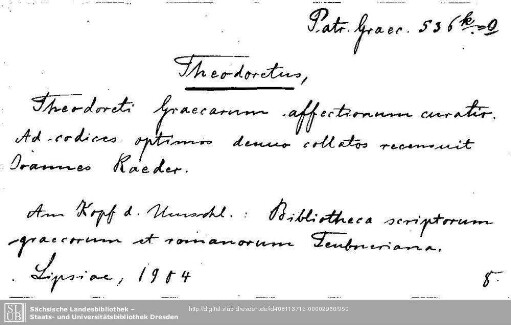 Patr. Graec. 536
Theodoretus,
Theodoreti Graecarum affectionum curatio.
Ad codices optimos denuo collatos recensuit
Ioannes Raeder.
Am Kopf d. Umschl.: Bibliotheca scriptorum
graecorum et romanorum Teubneriana.
Lipsiae, 1904 8.
SLUB
Sächsische Landesbibliothek –
Staats- und Universitätsbibliothek Dresden